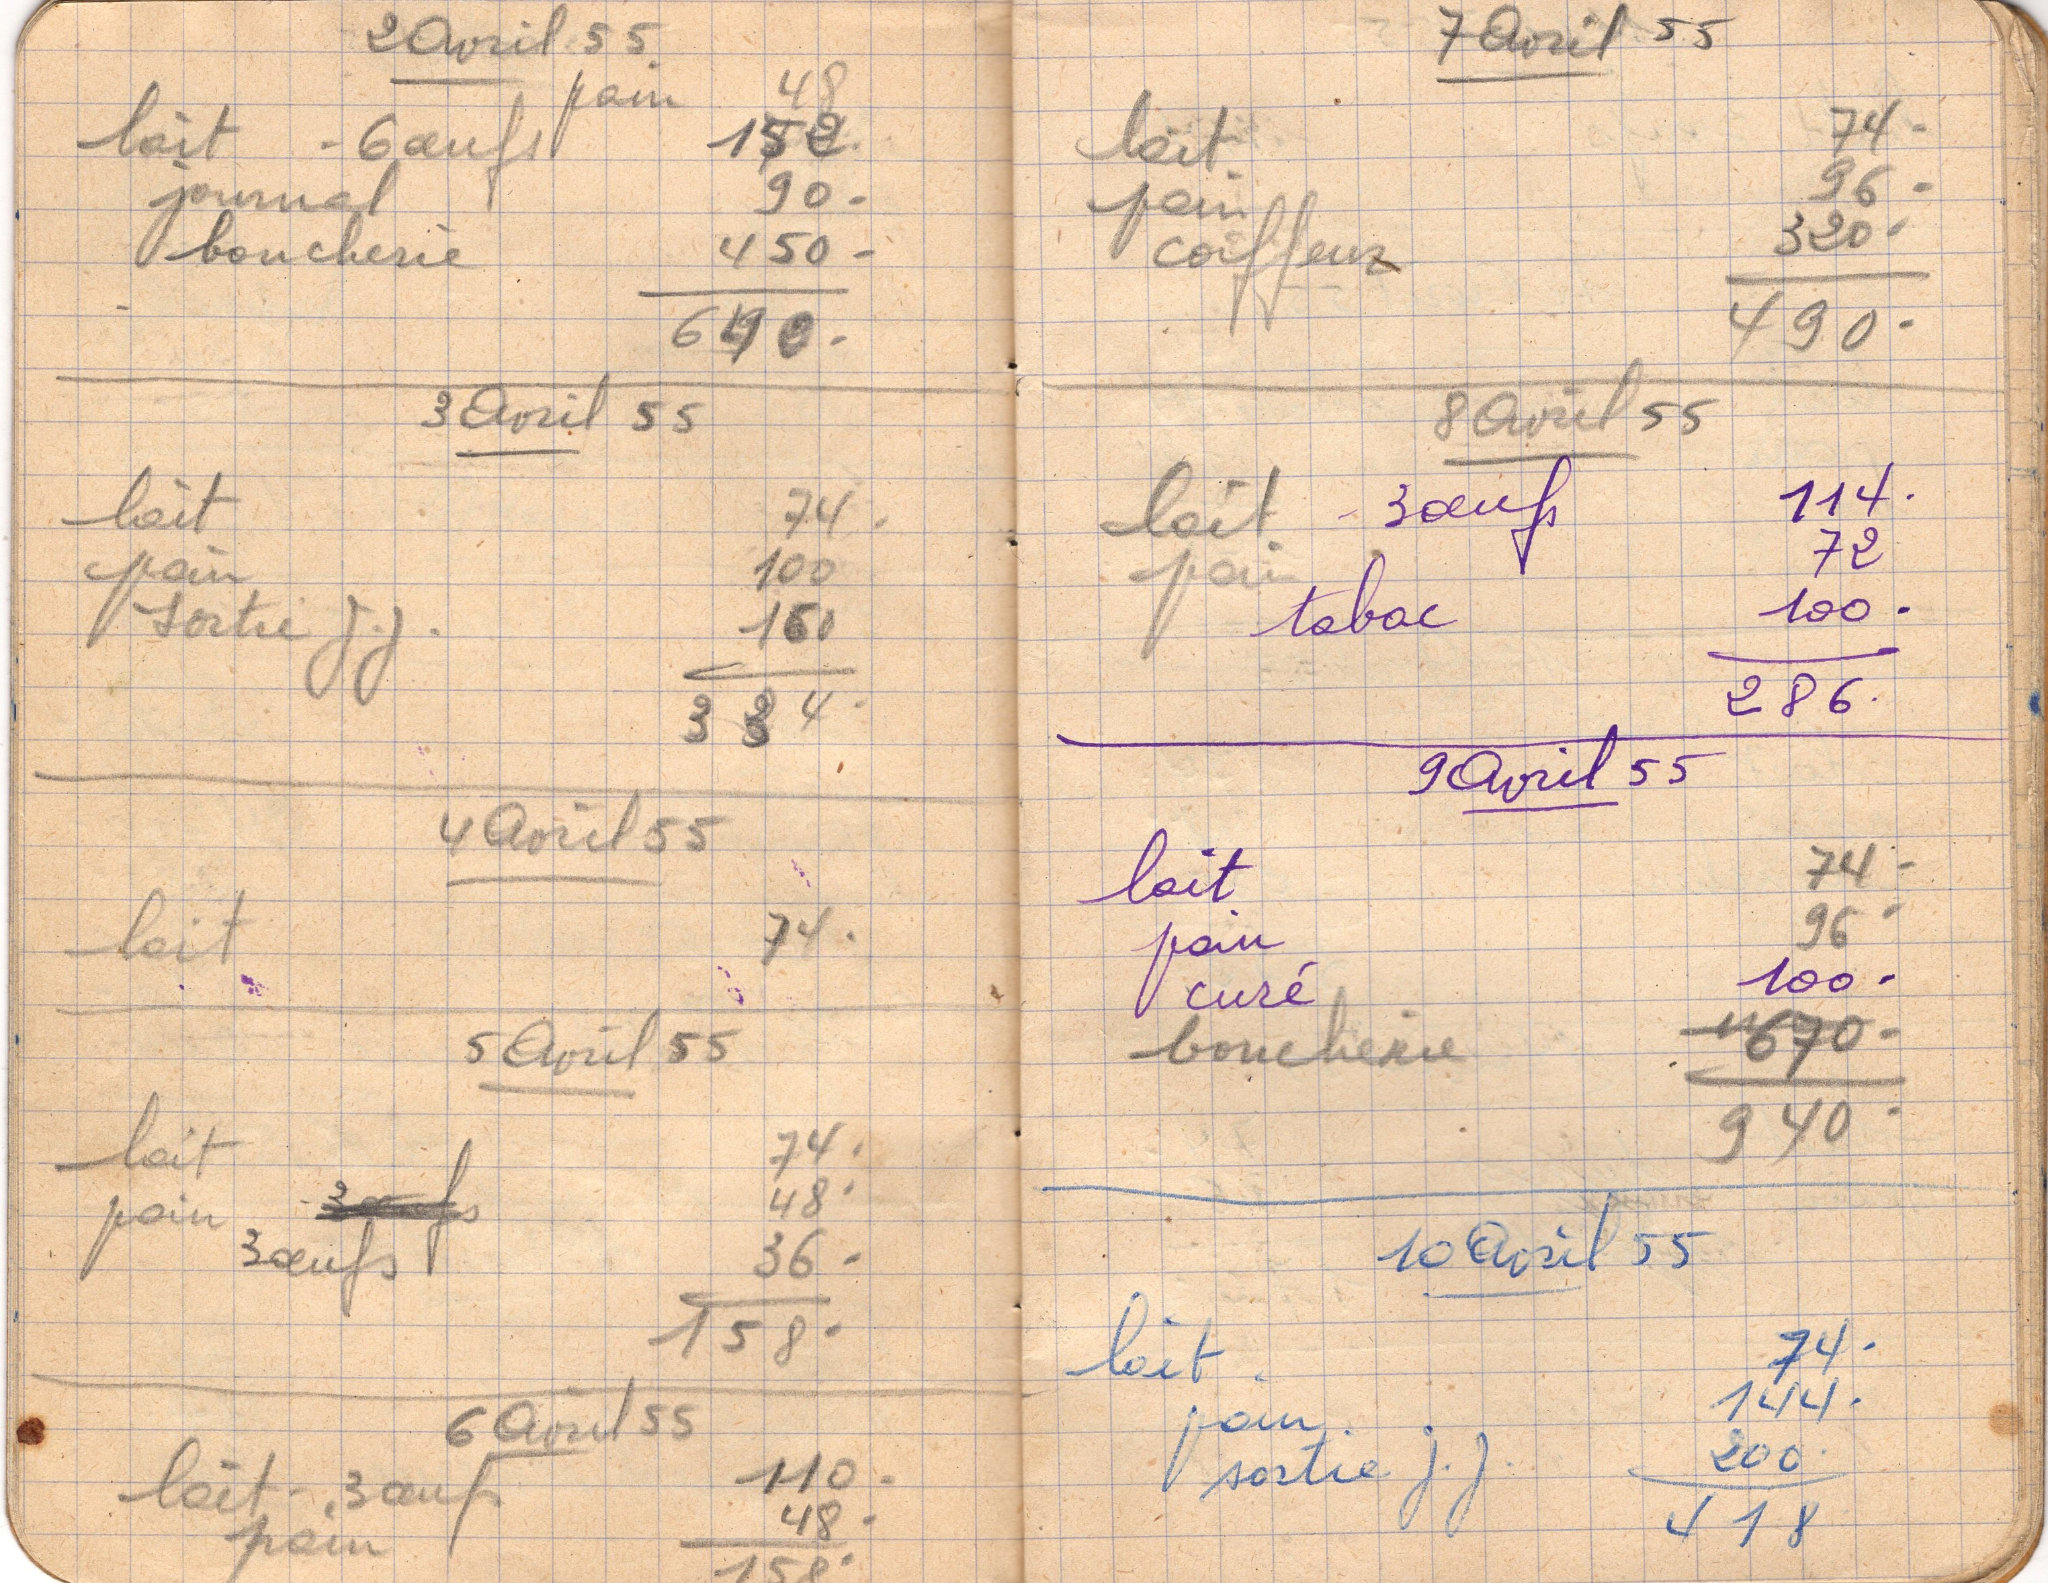 2 Avril 55
pain 48
lait - 6 œufs 152.
journal 90.-
boucherie 450.-
3 Avril 55
lait 74.
pain 100
sortie J.J. 160
334.
4 Avril 55
lait 74.
5 Avril 55
lait 74.
pain 48.
3 œufs 36.-
158.-
6 Avril 55
lait - 3 œufs 110.-
pain 48.-
158.-
7 Avril 55
lait 74.-
pain 96.-
coiffeur 320.-
490.-
8 Avril 55
lait - 3 œufs 114.
pain 72
tabac 100.-
286.
9 Avril 55
lait 74.-
pain 96.-
curé 100.-
boucherie 670.-
940.-
10 Avril 55
lait. 74.-
pain 144.-
sortie J.J. 200.
418